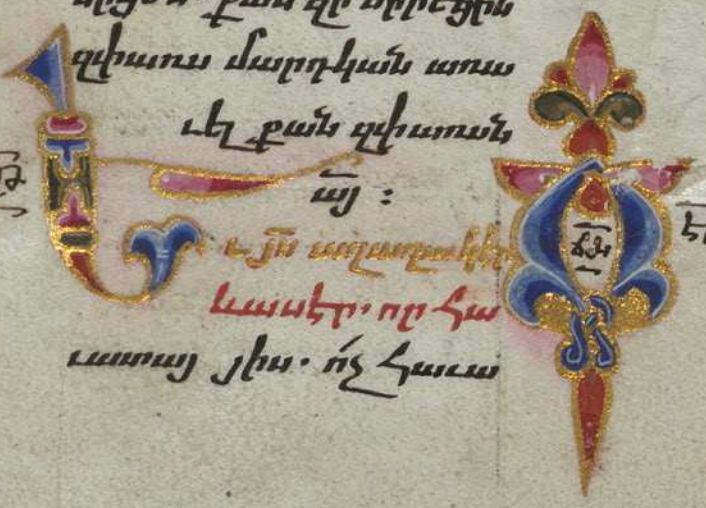 քան զի սիրեցին
զփառս մարդկան առա
ւել քան զփառսն
այ :
Եւ յս աղաղակէր
և ասէր. որ հա
ւատայ յիս. ոչ հաւա